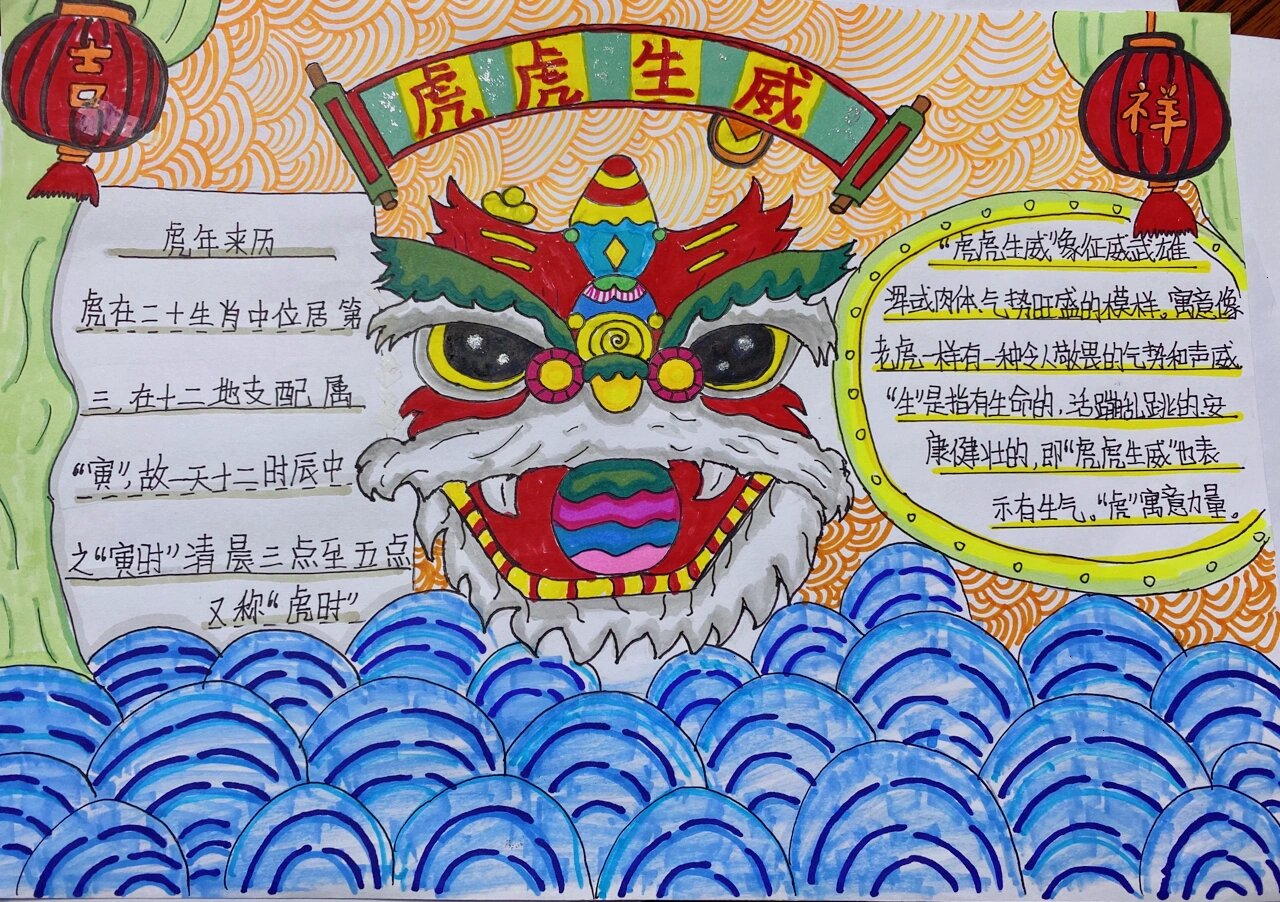 吉
虎虎生威
祥
虎年来历
虎在二十生肖中位居第
三,在十二地支配属
“寅”,故一天十二时辰中
之“寅时”清晨三点至五点
又称“虎时”
“虎虎生威”象征威武雄
浑式肉体气势旺盛的模样。寓意像
老虎一样有一种令人敬畏的气势和声威.
“生”是指有生命的,活蹦乱跳的.安
康健壮的,即“虎虎生威”也表
示有生气。“虎”寓意力量。